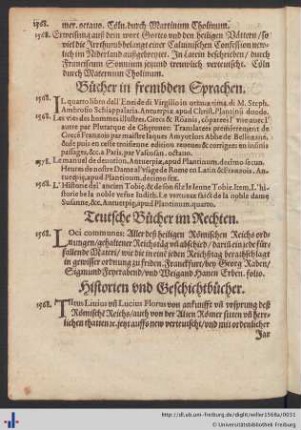 1568. mer. octauo. Cöln durch Martinum Cholinum.
1568. Erweisung auß dem wort Gottes vnd den heiligen Vättern / so
viel die Irrthumb belangt einer Caluinischen Confession new-
lich im Niderland außgebreitet. In latein beschrieben / durch
Franciscum Sonnium jetzund trewlich verteutscht. Cöln
durch Maternum Cholinum.
Bücher in frembden Sprachen.
1568. IL quarto libro dell' Eneide di Virgilio in ottaua rima, di M. Steph.
Ambrosio Schiappalaria. Antuerpiæ apud Christ. Plantinū duode.
1568. Les vies des hommes illustres, Grecs & Romains, cōparees l' vne auec l'
autre par Plutarque de Cheronee. Translatees premierement de
Grec en François par maistre Iaques Amyot lors Abbé de Bellozane,
& de puis en ceste troisieme edition reueues & corrigees en infinis
passages, &c. a Paris, par Vascosan. octauo.
1568. Le manuel de deuotion, Antuerpiæ, apud Plantinum. decimo sexto.
Heures de nostre Dame a l'vsage de Rome en Latin & Francois. An-
tuerpiæ, apud Plantinum. decimo sex.
1568. L' Histoire de l' ancien Tobie, & de son filz le Ienne Tobie. Item, L' hi-
storie de la noble vefue Iudith. Le vertueux faict de la noble dame
Susanne, &c. Antuerpiæ, apud Plantinum. quarto.
Teutsche Bücher im Rechten.
1568. LOci communes: Aller deß heiligen Römischen Reichs ord-
nungen / gehaltener Reichstäg vñ abschied / darüß ein jede für-
fallende Materi / wie die in einē jeden Reichstag berahtschlagt
in gewisser ordnung zu finden. Franckfurt / bey Georg Raben /
Sigmund Feyerabend / vnd Weigand Hanen Erben. folio.
Historien vnd Geschichtbücher.
1568. TItus Liuius vñ Lucius Florus von ankunfft vñ vrsprung deß
Römischē Reichs / auch von der Alten Römer sitten vñ herr-
lichen thatten ꝛc. jetzt auffs new verteutscht / vnd mit ordenlicher
Jar
http://dl.ub.uni-freiburg.de/diglit/willer1568a/0031
© Universitätsbibliothek Freiburg